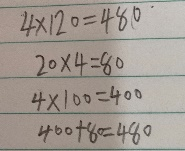 4×120=480
20×4=80
4×100=400
400+80=480